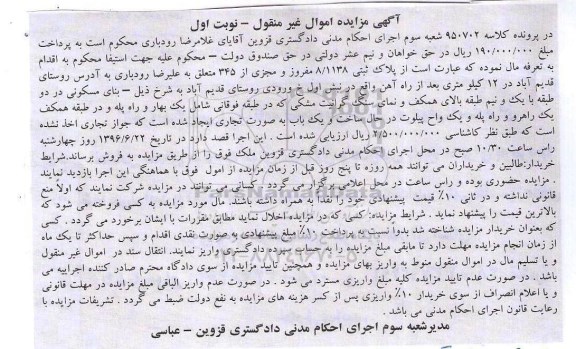 آگهی مزایده اموال غیر منقول - نوبت اول
در پرونده کلاسه ۹۵۰۷۰۲ شعبه سوم اجرای احکام مدنی دادگستری قزوین آقابای غلامرضا رودباری محکوم است به پرداخت
مبلغ ۱۹۰/۰۰۰/۰۰۰ ریال در حق خواهان و نیم عشر دولتی در حق صندوق دولت – محکوم علیه جهت استیفا محکوم به اقدام
به تعرفه مال نموده که عبارت است از پلاک ثبتی ۸/۱۱۳۸ مفروز و مجزی از ۳۴۵ متعلق به علیرضا رودباری به آدرس روستای
قدیم آباد در ۱۲ کیلو متری بعد از راه آهن واقع در نبش اول خ ورودی روستای قدیم آباد به شرح ذیل – بنای مسکونی در دو
طبقه با یک و نیم طبقه بالای همکف و نمای سنگ گرانیت مشکی که در طبقه فوقانی شامل یک بهار و راه پله و در طبقه همکف
یک راهرو و راه پله و یک واح پیلوت در حال ساخت و یک باب به صورت تجاری ایجاد شده است که جواز تجاری اخذ نشده
است که طبق نظر کاشناسی ۲/۵۰۰/۰۰۰/۰۰۰ ریال ارزیابی شده است . این اجرا قصد دارد در تاریخ ۱۳۹۶/۶/۲۲ روز چهارشنبه
راس ساعت ۱۰/۳۰ صبح در محل اجرای احکام مدنی دادگستری قزوین ملک فوق را از طریق مزایده به فروش برساند.شرایط
خریدار:طالبین و خریداران می توانند همه روزه تا پنج روز قبل از زمان مزایده از اموال فوق با هماهنگی این اجرا بازدید نمایند
. مزایده حضوری بوده و راس ساعت در محل اعلامی برگزار می گردد . کسانی می توانند در مزایده شرکت نمایند که اولاً منع
قانونی نداشته و در ثانی ۱۰٪ قیمت پیشنهادی خود را نقداً به همراه داشته باشند. مال مورد مزایده به کسی فروخته می شود که
بالاترین قیمت را پیشنهاد نماید . شرایط مزایده: کسی که در مزایده اخلال نماید مطابق مقررات با ایشان برخورد می گردد . کسی
که بعنوان خریدار مزایده شناخته شد بدوا نسبت به پرداخت ۱۰٪ مبلغ پیشنهادی به صورت نقدی اقدام و سپس حداکثر تا یک ماه
از زمان انجام مزایده مهلت دارد تا مابقی مبلغ مزایده را به حساب سپرده دادگستری واریز نمایند. انتقال سند در اموال غیر منقول
و یا تسلیم مال در اموال منقول منوط به واریز بهای مزایده و همچنین تایید مزایده از سوی دادگاه محترم صادر کننده اجراییه می
باشد . در صورت عدم تایید مزایده کلیه مبلغ واریزی مسترد می شود . در صورت عدم واریز الباقی مبلغ مزایده در مهلت قانونی
و یا اعلام انصراف از سوی خریدار ۱۰٪ واریزی پس از کسر هزینه های مزایده به نفع دولت ضبط می گردد . تشریفات مزایده با
رعایت قانون اجرای احکام مدنی می باشد .
مدیرشعبه سوم اجرای احکام مدنی دادگستری قزوین – عباسی